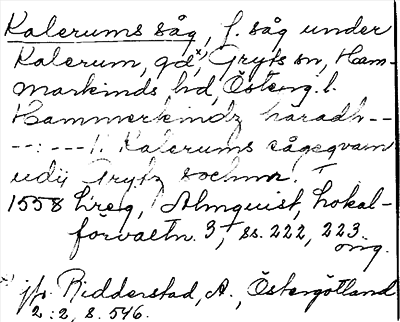 Kalerums såg, f. såg under
Kalerum, gd,* Gryts sn, Ham-
markinds hd, Österg. l.
Hammerkindz häradh --
--:--- 1. Kalerums sågeqvarn
udij Grytz sochnn. T
1558 hreg, Almquist, Lokal-
förvaltn. 3, ss. 222, 223.
orig.
*) jfr Ridderstad, A., Östergötland
2:2, s. 546.